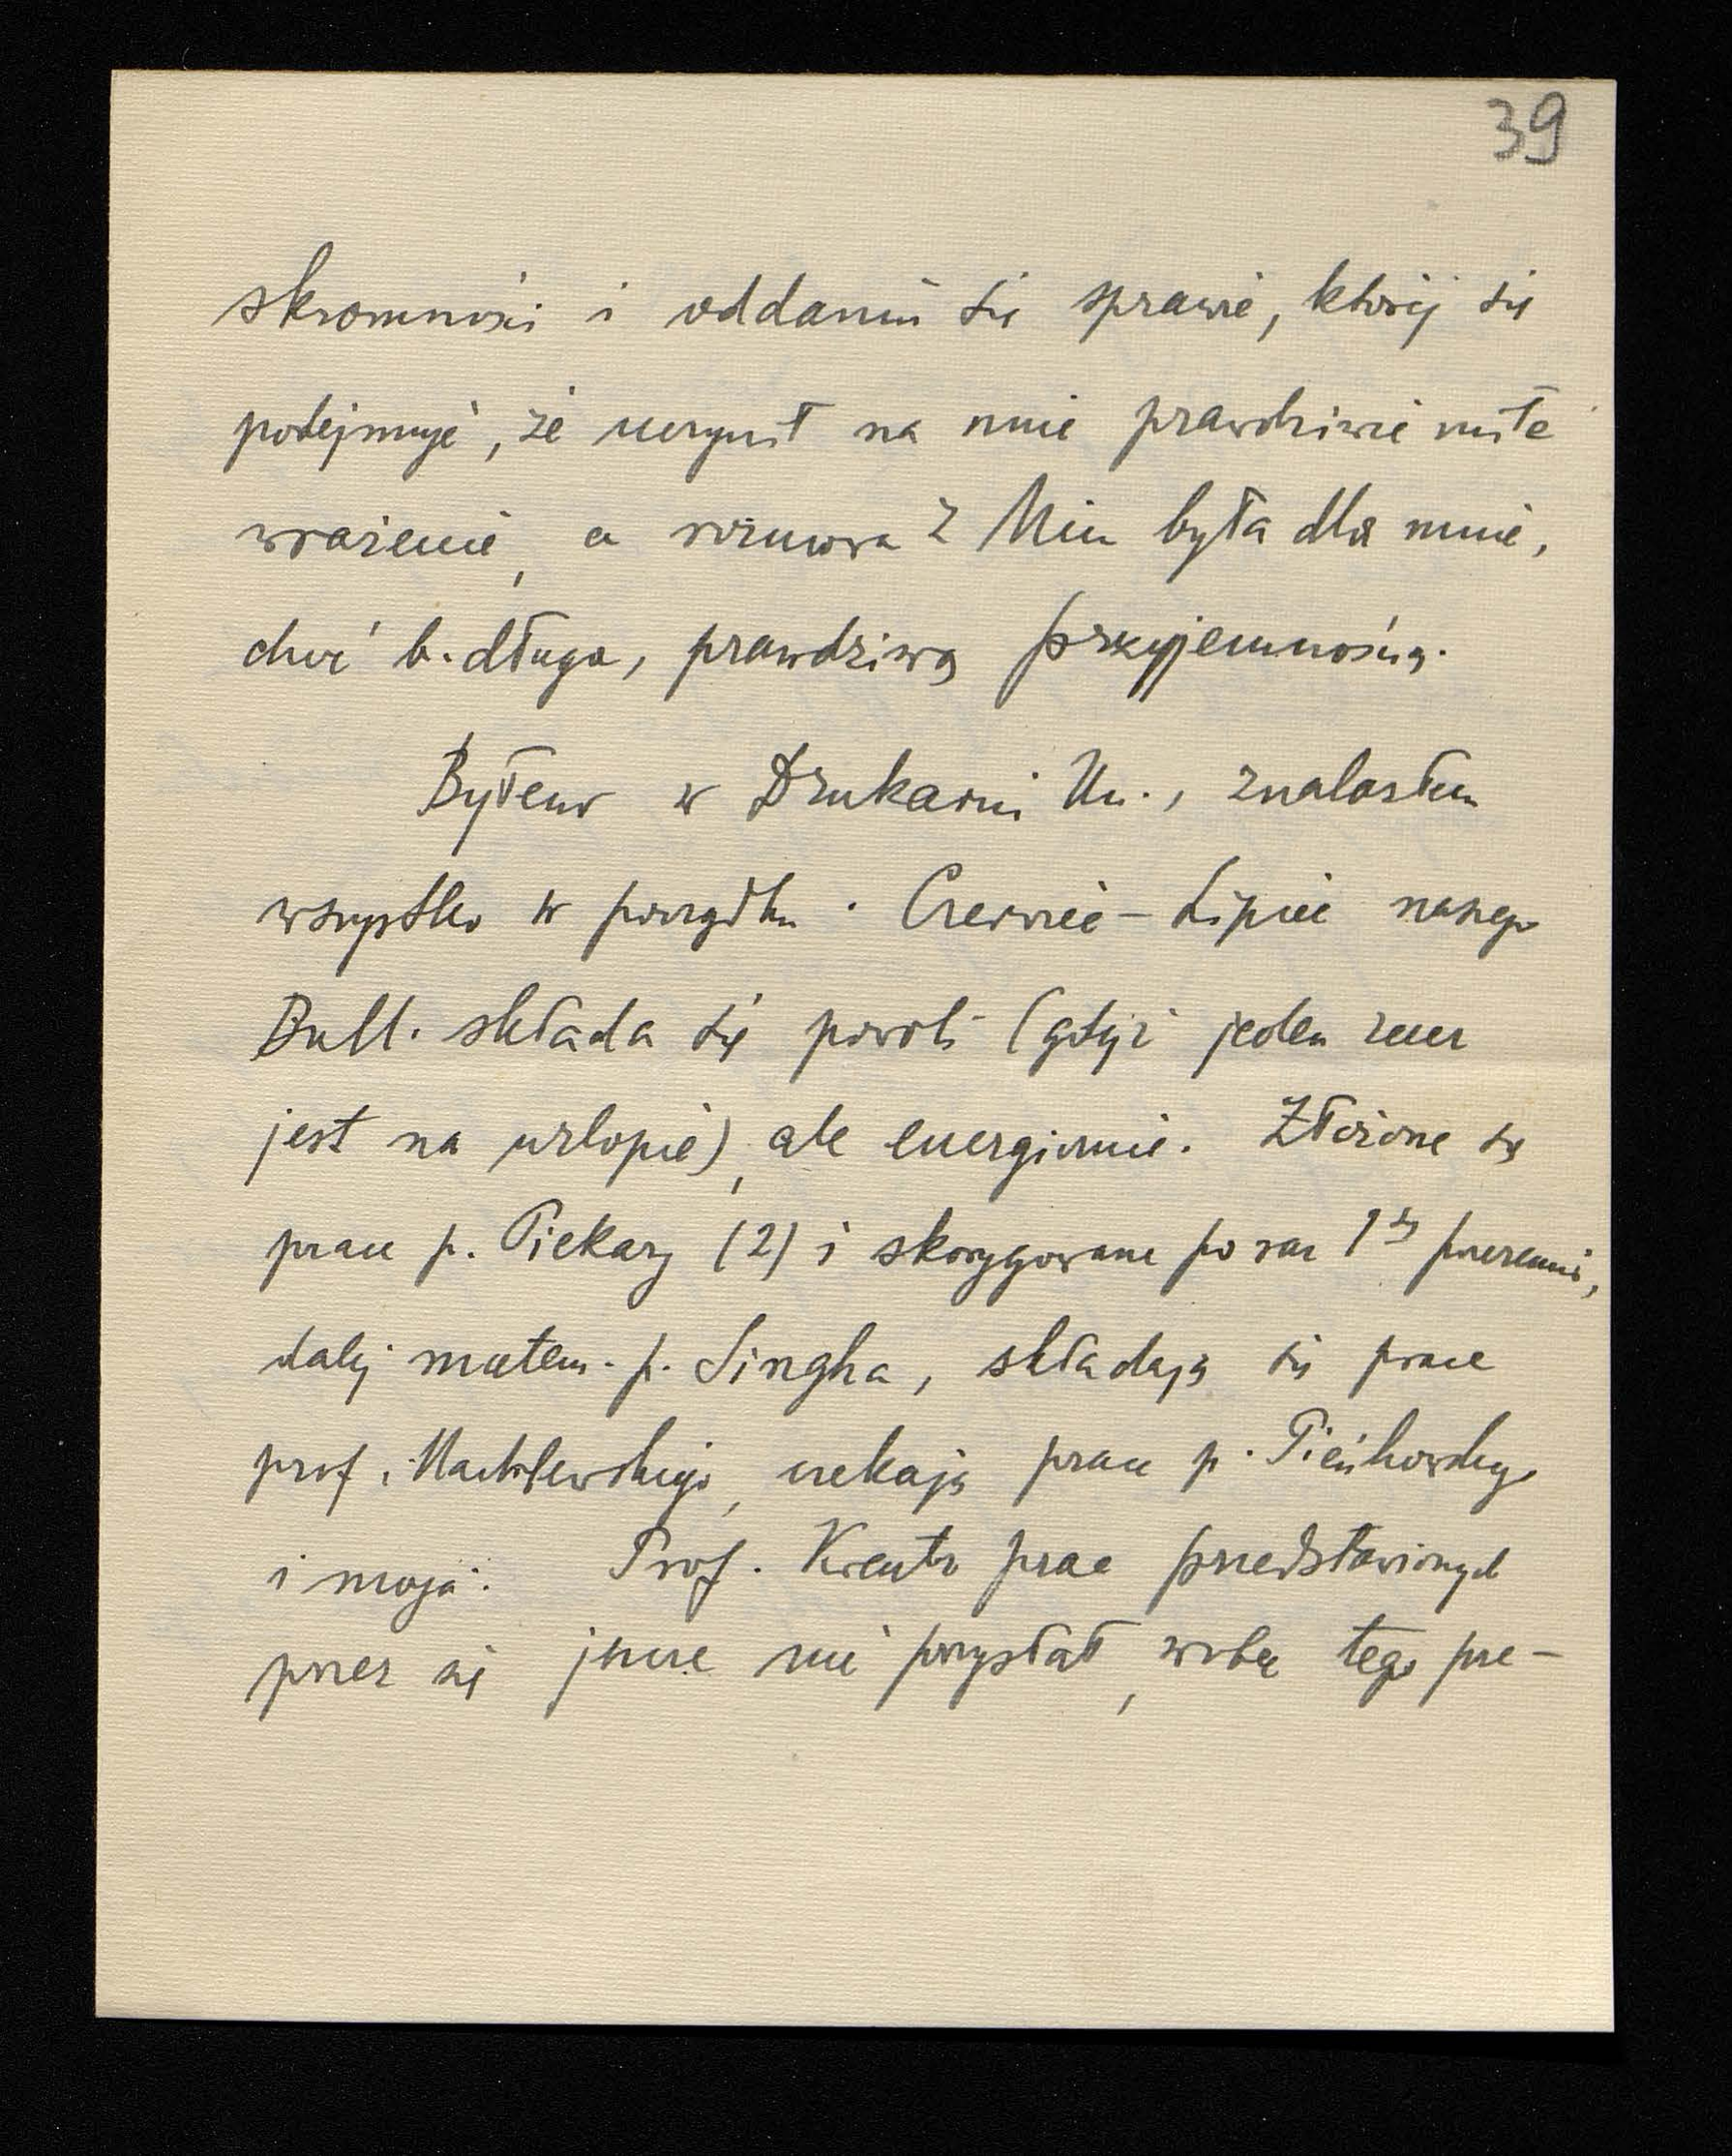 39
skromności i oddaniu się sprawie, której się
podejmuje, że uczynił na mnie prawdziwie miłe
wrażenie, a rozmowa z Nim była dla mnie,
choć b. długa, prawdziwą przyjemnością.
Byłem w Drukarni Un., znalazłem
wszystko w porządku. Czerwiec – Lipiec naszego
Bull. składa się powoli (gdyż jeden zecer
jest na urlopie), ale energicznie. Złożone są
prace p. Piekary (2) i skorygowane po raz 1szy przezemnie,
dalej matem. p. Singha, składają się prace
prof. Marchlewskiego, czekają prace p. Pieńkowskiego
i moja. Prof. Kreutz prac przedstawionych
przez się jeszcze nie przysłał, wobec tego prze-